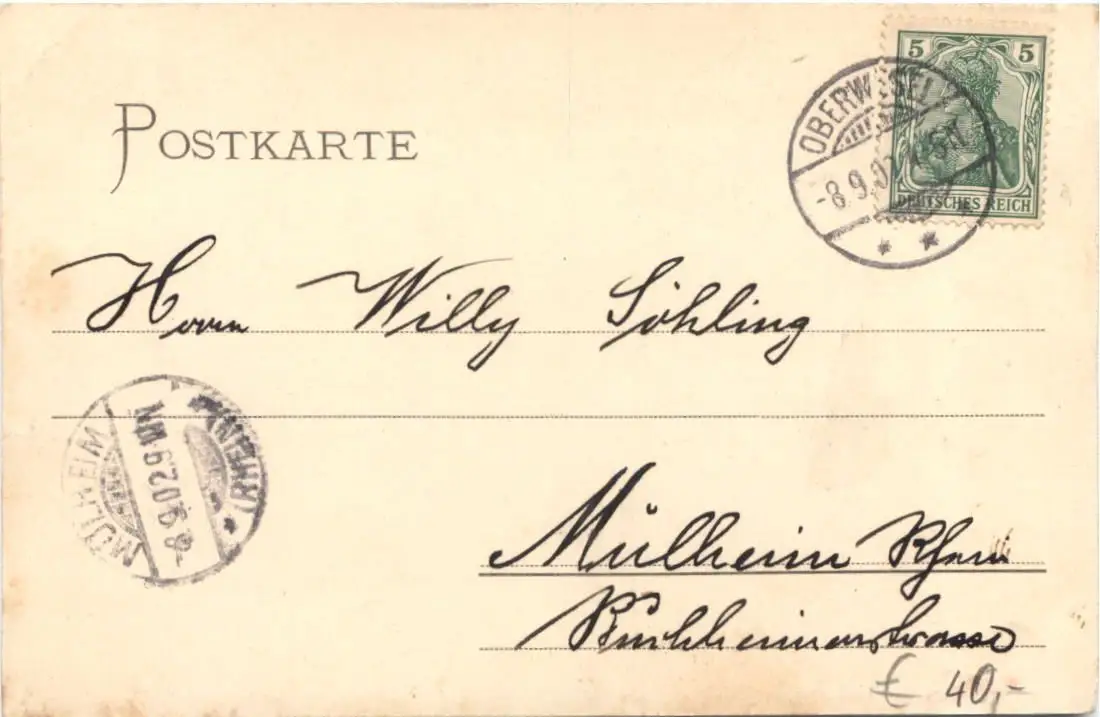 5 5
DEUTSCHES REICH
OBERWESEL
-8.9.02
POSTKARTE
Herrn Willy Söhling
MÜLHEIM
-8.9.02.9-10N
(RHEIN)
Mülheim Rhein
Buchheimerstrasse
€ 40,-